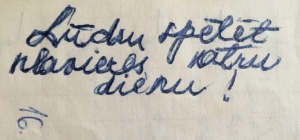 Lūdzu spēlēt
klavieres katru
dienu!
16.